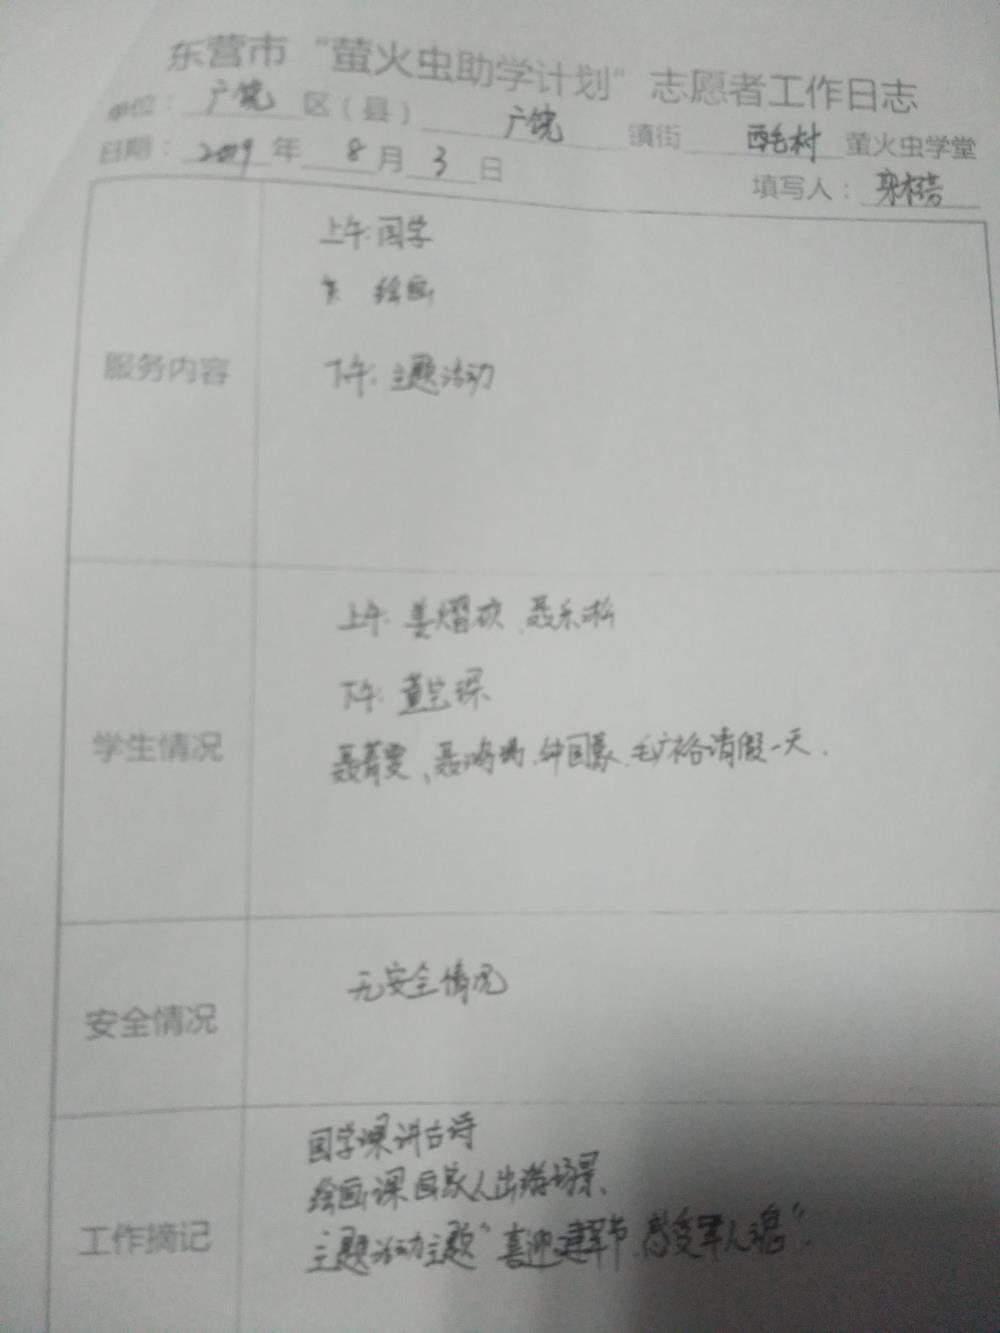 东营市“萤火虫助学计划”志愿者工作日志
单位：广饶区（县）广饶镇街西毛村萤火虫学堂
日期：2019年8月3日
填写人：
服务内容
上午:国学
绘画
下午:主题活动
学生情况
上午:姜熠
下午:董
请假一天.
安全情况
无安全情况
工作摘记
国学课讲古诗
绘画课画家人出游场景、
主题活动主题“喜迎建军节.感受军人魂”.